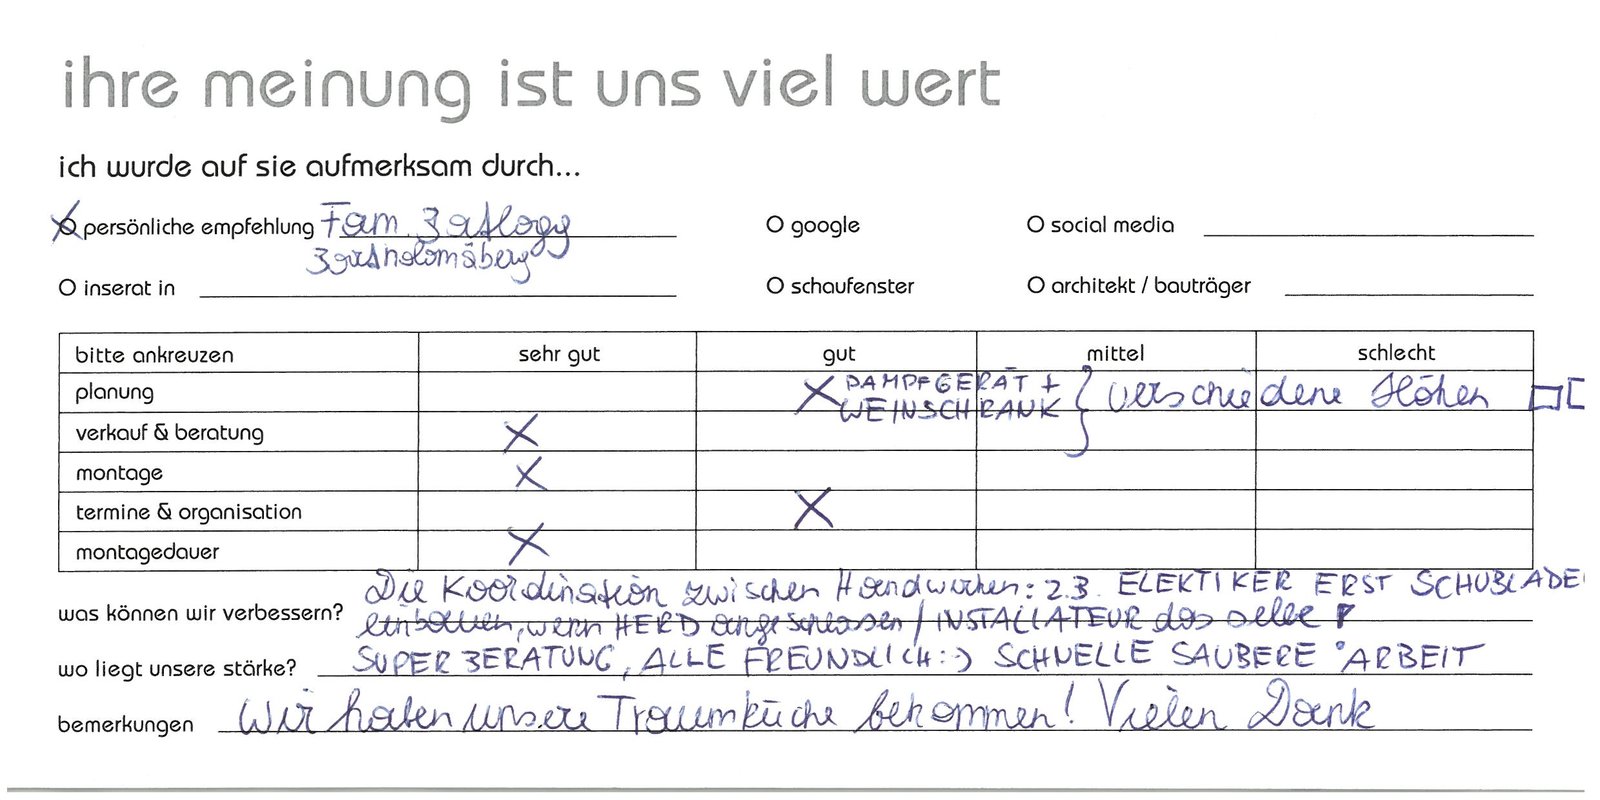 ihre meinung ist uns viel wert
ich wurde auf sie aufmerksam durch...
O persönliche empfehlung Fam. O google O social media
Bartholomäberg
O inserat in O schaufenster O architekt / bauträger
bitte ankreuzen sehr gut gut mittel schlecht
planung X DAMPFGERÄT + WEINSCHRANK } verschiedene Höhen
verkauf & beratung X
montage X
termine & organisation X
montagedauer X
Die Koordination zwischen Handwerker: z.B. ELEKTIKER ERST SCHUBLADE
was können wir verbessern? einbauen, wenn HERD angeschlossen / INSTALLATEUR das
wo liegt unsere stärke? SUPER BERATUNG, ALLE FREUNDLICH :-) SCHNELLE SAUBERE ARBEIT
bemerkungen Wir haben unsere Traumküche bekommen! Vielen Dank